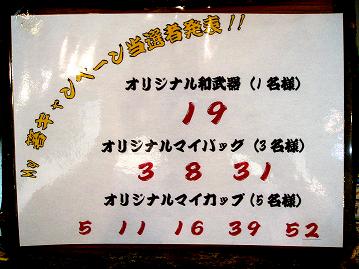 My 箸キャンペーン当選者発表!!
オリジナル和武器(1名様)
19
オリジナルマイバッグ(3名様)
3 8 31
オリジナルマイカップ(5名様)
5 11 16 39 52